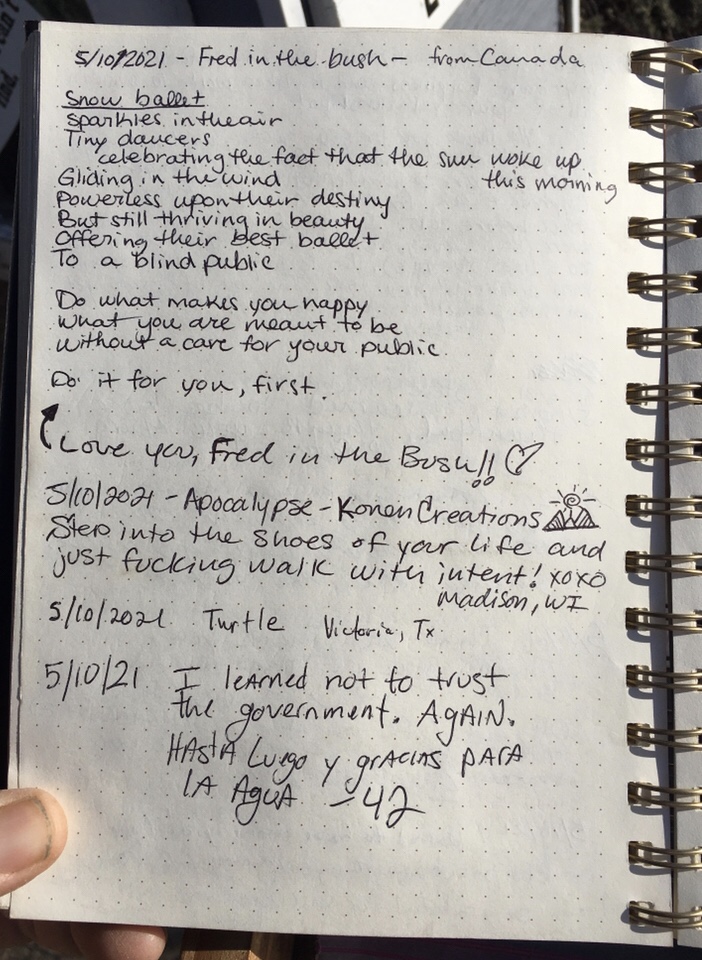 5/10/2021 - Fred in the bush - from Canada
Snow ballet
Sparkles in the air
Tiny dancers
celebrating the fact that the sun woke up
this morning
Gliding in the wind
Powerless upon their destiny
But still thriving in beauty
Offering their best ballet
To a blind public
Do what makes you happy
What you are meant to be
without a care for your public
Do it for you, first.
Love you, Fred in the Bush!! ♡
5/10/2021 - Apocalypse - Konen Creations
Step into the shoes of your life and
just fucking walk with intent! xoxo
Madison, WI
5/10/2021 Turtle Victoria, Tx
5/10/21 I learned not to trust
the government. AgAIN.
HAstA Luego y grACIAS PARA
LA AguA - 42